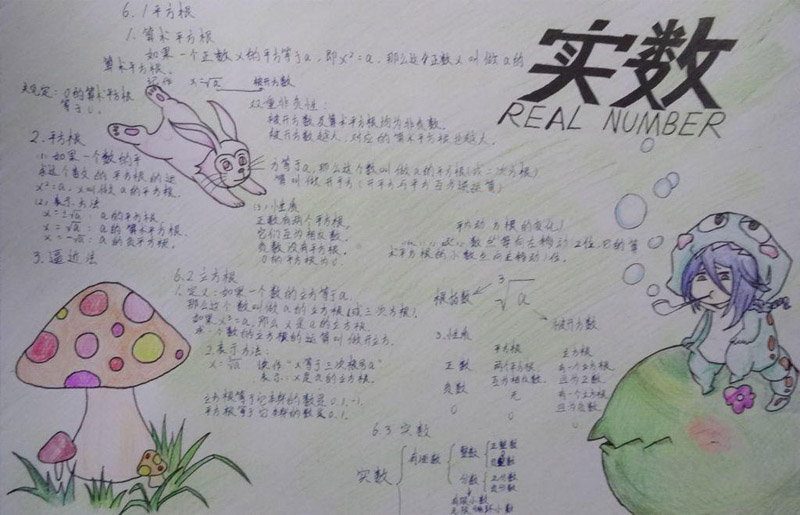 6.1 平方根
1. 算术平方根
如果一个正数x的平方等于a,即x²=a,那么这个正数x叫做a的
算术平方根。
记作 x=√a 被开方数
规定:0的算术平方根
等于0。
双重非负性:
被开方数及算术平方根均为非负数。
被开方数越大,对应的算术平方根也越大。
实数
REAL NUMBER
2. 平方根
(1) 如果一个数的平方等于a,那么这个数叫做a的平方根(或二次方根)
求这个数的平方根的运算叫做开平方(开平方与平方互为逆运算)
x²=a,x叫做a的平方根。
(2) 表示方法
x=±√a:a的平方根。
x=√a:a的算术平方根。
x=-√a:a的负平方根。
3. 逼近法
(3) 性质
正数有两个平方根,
它们互为相反数。
负数没有平方根。
0的平方根为0。
数点每向右移动2位,它的算
术平方根的小数点向右移动1位。
6.2 立方根
1. 定义:如果一个数的立方等于a,
那么这个数叫做a的立方根(或三次方根)
如果x³=a,那么x是a的立方根。
求一个数的立方根的运算叫做开立方。
2. 表示方法:
x=³√a 读作"x等于三次根号a"
表示:x是a的立方根。
立方根等于它本身的数是0,1,-1.
平方根等于它本身的数是0,1.
根指数 ³√a
被开方数
3. 性质
平方根 立方根
正数 两个平方根, 有一个立方根,
互为相反数。 且为正数。
负数 无 有一个立方根,
且为负数。
0 0 0
6.3 实数
实数 有理数 整数 正整数
0
负整数
分数 正分数
负分数
有限小数
无限循环小数